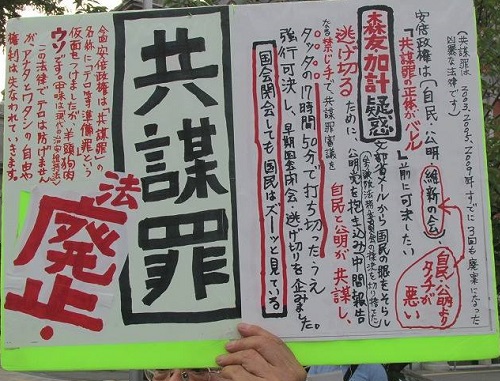 (共謀罪は2003、2005、2009年すでに3回も廃案になった
凶暴な法律です)
安倍政権は(自民、公明、維新の会)、
「共謀罪の正体がバレル」前に可決したい
自民・公明より
タチが
悪い
森友加計疑惑
文部省メールから国民の眼をそらし
逃げ切るために、公明党を抱き込み「中間報告」
なる禁じ手で、共謀罪審議を
自民と公明が共謀し、
タッタの17時間50分で打ち切ったうえ
強行可決し、早期国会閉会、逃げ切りを企みました。
国会閉会しても国民はズーッと見ている
共謀罪
法
廃止・
今回安倍政権は「共謀罪」の
名称に「テロ等準備罪」という
仮面をつけましたが、羊頭狗肉
ウソです。(中味は現代の治安維持法)
この法律でテロは防げません
が、アナタとワタシの自由や
権利は失なわれていきます。